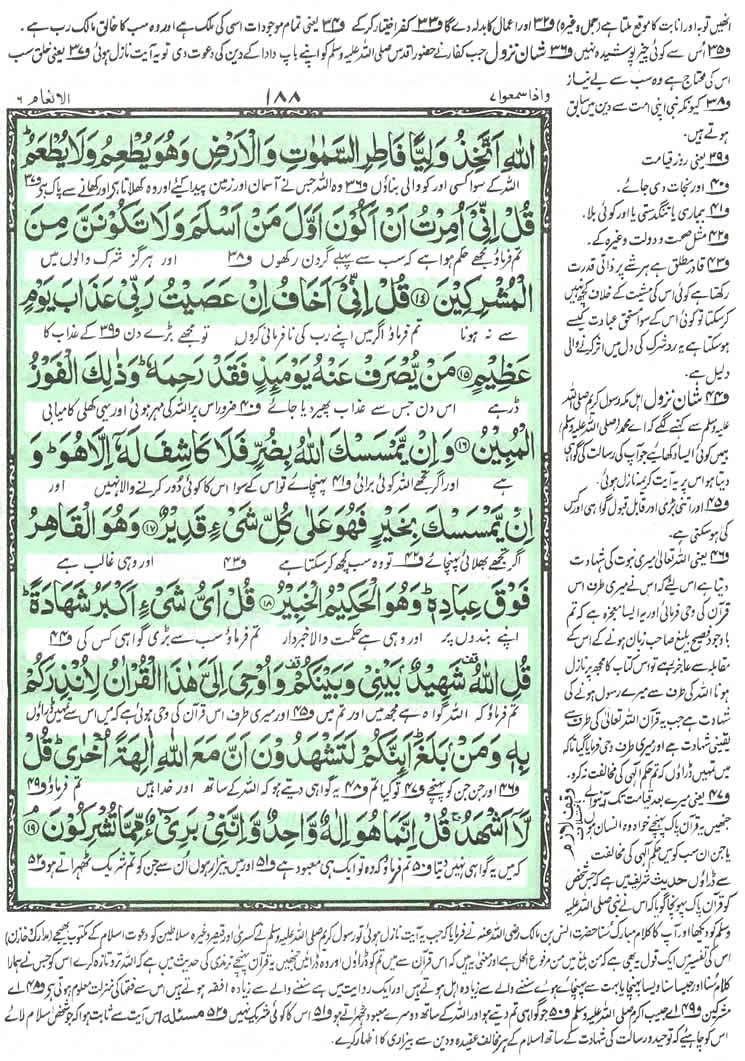 انھیں توبہ اور انابت کا موقع ملتا ہے (جمل وغیرہ) ف۳۲ اور اعمال کا بدلہ دے گا ف۳۳ کفر اختیار کرکے ف۳۴ یعنی تمام موجودات اسی کی ملک ہے اور وہ سب کا خالق مالک رب ہے۔
ف۳۵ اس سے کوئی چیز پوشیدہ نہیں ف۳۶ شان نزول جب کفار نے حضور اقدس صلی اللہ علیہ وسلم کو اپنے باپ دادا کے دین کی دعوت دی تو یہ آیت نازل ہوئی ف۳۷ یعنی خلق سب
اس کی محتاج ہے وہ سب سے بے نیاز
ف۳۸ کیونکہ نبی اپنی امت سے دین میں سابق
ہوتے ہیں۔
ف۳۹ یعنی روز قیامت
ف۴۰ اور نجات دی جائے۔
ف۴۱ بیماری یا تنگدستی یا اور کوئی بلا۔
ف۴۲ مثل صحت و دولت وغیرہ کے۔
ف۴۳ قادر مطلق ہے ہر شے پر ذاتی قدرت
رکھتا ہے کوئی اس کی مشیت کے خلاف کچھ نہیں
کرسکتا تو کوئی اس کے سوا مستحق عبادت کیسے
ہوسکتا ہے یہ رد شرک کی دل میں اثر کرنے والی
دلیل ہے۔
ف۴۴ شان نزول اہل مکہ رسول کریم صلی اللہ
علیہ وسلم سے کہنے لگے کہ اے محمد (صلی اللہ علیہ وسلم)
ہمیں کوئی ایسا دکھائیے جو آپ کی رسالت کی گواہی
دیتا ہو اس پر یہ آیت کریمہ نازل ہوئی۔
ف۴۵ اور اتنی بڑی اور قابل قبول گواہی اور کس
کی ہوسکتی ہے۔
ف۴۶ یعنی اللہ تعالیٰ میری نبوت کی شہادت
دیتا ہے اس لئے کہ اس نے میری طرف اس
قرآن کی وحی فرمائی اور یہ ایسا معجزہ ہے کہ تم
باوجود فصیح بلیغ صاحب زبان ہونے کے اس کے
مقابلہ سے عاجز رہے تو اس کتاب کا مجھ پر نازل
ہونا اللہ کی طرف سے میرے رسول ہونے کی
شہادت ہے جب یہ قرآن اللہ تعالیٰ کی طرف سے
یقینی شہادت ہے اور میری طرف وحی فرمایا گیا تاکہ
میں تمہیں ڈراؤں کہ تم حکم الٰہی کی مخالفت نہ کرو۔
ف۴۷ یعنی میرے بعد قیامت تک آنے والے
جنھیں یہ قرآن پاک پہنچے خواہ وہ انسان ہوں
یا جن ان سب کو میں حکم الٰہی کی مخالفت
سے ڈراؤں حدیث شریف میں ہے کہ جس شخص
کو قرآن پاک پہونچا گویا کہ اس نے نبی صلی اللہ علیہ
واذا سمعوا ۷
۱۸۸
الانعام ۶
اللهِ اَتَّخِذُ وَلِيًّا فَاطِرِ السَّمٰوٰتِ وَالْاَرْضِ وَهُوَ يُطْعِمُ وَلَا يُطْعَمُ ؕ
اللہ کے سوا کسی اور کو والی بناؤں ف۳۶ وہ اللہ جس نے آسمان اور زمین پیدا کئے اور وہ کھلاتا ہے اور کھانے سے پاک ہے ف۳۷
قُلْ اِنِّیْۤ اُمِرْتُ اَنْ اَكُوْنَ اَوَّلَ مَنْ اَسْلَمَ وَلَا تَكُوْنَنَّ مِنَ
تم فرماؤ مجھے حکم ہوا ہے کہ سب سے پہلے گردن رکھوں ف۳۸ اور ہرگز شرک والوں میں
الْمُشْرِكِيْنَ ﴿۱۴﴾ قُلْ اِنِّیْۤ اَخَافُ اِنْ عَصَيْتُ رَبِّیْ عَذَابَ يَوْمٍ
سے نہ ہونا تم فرماؤ اگر میں اپنے رب کی نافرمانی کروں تو مجھے بڑے دن ف۳۹ کے عذاب کا
عَظِيْمٍ ﴿۱۵﴾ مَنْ يُّصْرَفْ عَنْهُ يَوْمَئِذٍ فَقَدْ رَحِمَهٗ ؕ وَذٰلِكَ الْفَوْزُ
ڈر ہے اس دن جس سے عذاب پھیر دیا جائے ف۴۰ ضرور اس پر اللہ کی مہر ہوئی اور یہی کھلی کامیابی
الْمُبِيْنُ ﴿۱۶﴾ وَاِنْ يَّمْسَسْكَ اللهُ بِضُرٍّ فَلَا كَاشِفَ لَهٗۤ اِلَّا هُوَ ؕ وَ
ہے اور اگر تجھے اللہ کوئی برائی ف۴۱ پہنچائے تو اس کے سوا اس کا کوئی دور کرنے والا نہیں اور
اِنْ يَّمْسَسْكَ بِخَيْرٍ فَهُوَ عَلٰی كُلِّ شَیْءٍ قَدِيْرٌ ﴿۱۷﴾ وَهُوَ الْقَاهِرُ
اگر تجھے بھلائی پہنچائے ف۴۲ تو وہ سب کچھ کرسکتا ہے ف۴۳ اور وہی غالب ہے
فَوْقَ عِبَادِهٖ ؕ وَهُوَ الْحَكِيْمُ الْخَبِيْرُ ﴿۱۸﴾ قُلْ اَیُّ شَیْءٍ اَكْبَرُ شَهَادَةً ؕ
اپنے بندوں پر اور وہی ہے حکمت والا خبردار تم فرماؤ سب سے بڑی گواہی کس کی ف۴۴
قُلِ اللهُ ۫ شَهِيْدٌۢ بَيْنِیْ وَبَيْنَكُمْ ۫ وَاُوْحِیَ اِلَیَّ هٰذَا الْقُرْاٰنُ لِاُنْذِرَكُمْ
تم فرماؤ کہ اللہ گواہ ہے مجھ میں اور تم میں ف۴۵ اور میری طرف اس قرآن کی وحی ہوئی ہے کہ میں اس سے تمہیں ڈراؤں
بِهٖ وَمَنْۢ بَلَغَ ؕ اَئِنَّكُمْ لَتَشْهَدُوْنَ اَنَّ مَعَ اللهِ اٰلِهَةً اُخْرٰی ؕ قُلْ
ف۴۶ اور جن جن کو پہنچے ف۴۷ تو کیا تم ف۴۸ یہ گواہی دیتے ہو کہ اللہ کے ساتھ اور خدا ہیں تم فرماؤ ف۴۹
لَّاۤ اَشْهَدُ ۚ قُلْ اِنَّمَا هُوَ اِلٰهٌ وَّاحِدٌ وَّاِنَّنِیْ بَرِیْٓءٌ مِّمَّا تُشْرِكُوْنَ ﴿۱۹﴾
کہ میں یہ گواہی نہیں دیتا ف۵۰ تم فرماؤ کہ وہ تو ایک ہی معبود ہے ف۵۱ اور میں بیزار ہوں اُن سے جن کو تم شریک ٹھہراتے ہو ف۵۲
وقف لازم
وسلم کو دیکھا اور آپ کا کلام مبارک سنا حضرت انس بن مالک رضی اللہ عنہ نے فرمایا کہ جب یہ آیت نازل ہوئی تو رسول کریم صلی اللہ علیہ وسلم نے کسریٰ اور قیصر وغیرہ سلاطین کو دعوت اسلام کے مکتوب بھیجے (مدارک وخازن)
اس کی تفسیر میں ایک قول یہ بھی ہے کہ من بلغ میں من مرفوع المحل ہے اور معنی یہ ہیں کہ اس قرآن سے میں تم کو ڈراؤں اور وہ ڈرائیں جنھیں یہ قرآن پہنچے ترمذی کی حدیث میں ہے کہ اللہ تروتازہ کرے اس کو جس نے ہمارا
کلام سنا اور جیسا سنا ویسا پہنچایا بہت سے پہنچائے ہوئے سننے والے سے زیادہ اہل ہوتے ہیں اور ایک روایت میں ہے سننے والے سے زیادہ افقہ ہوتے ہیں اس سے فقہا کی منزلت معلوم ہوتی ہے ف۴۸ اے
مشرکین ف۴۹ اے حبیب اکرم صلی اللہ علیہ وسلم ف۵۰ جو گواہی تم دیتے ہو اور اللہ کے ساتھ دوسرے معبود ٹھہراتے ہو ف۵۱ اس کا کوئی شریک نہیں ف۵۲ مسئلہ اس آیت سے ثابت ہوا کہ جو شخص اسلام لائے
اس کو چاہیے کہ توحید و رسالت کی شہادت کے ساتھ اسلام کے ہر مخالف عقیدہ و دین سے بیزاری کا اظہار کرے۔